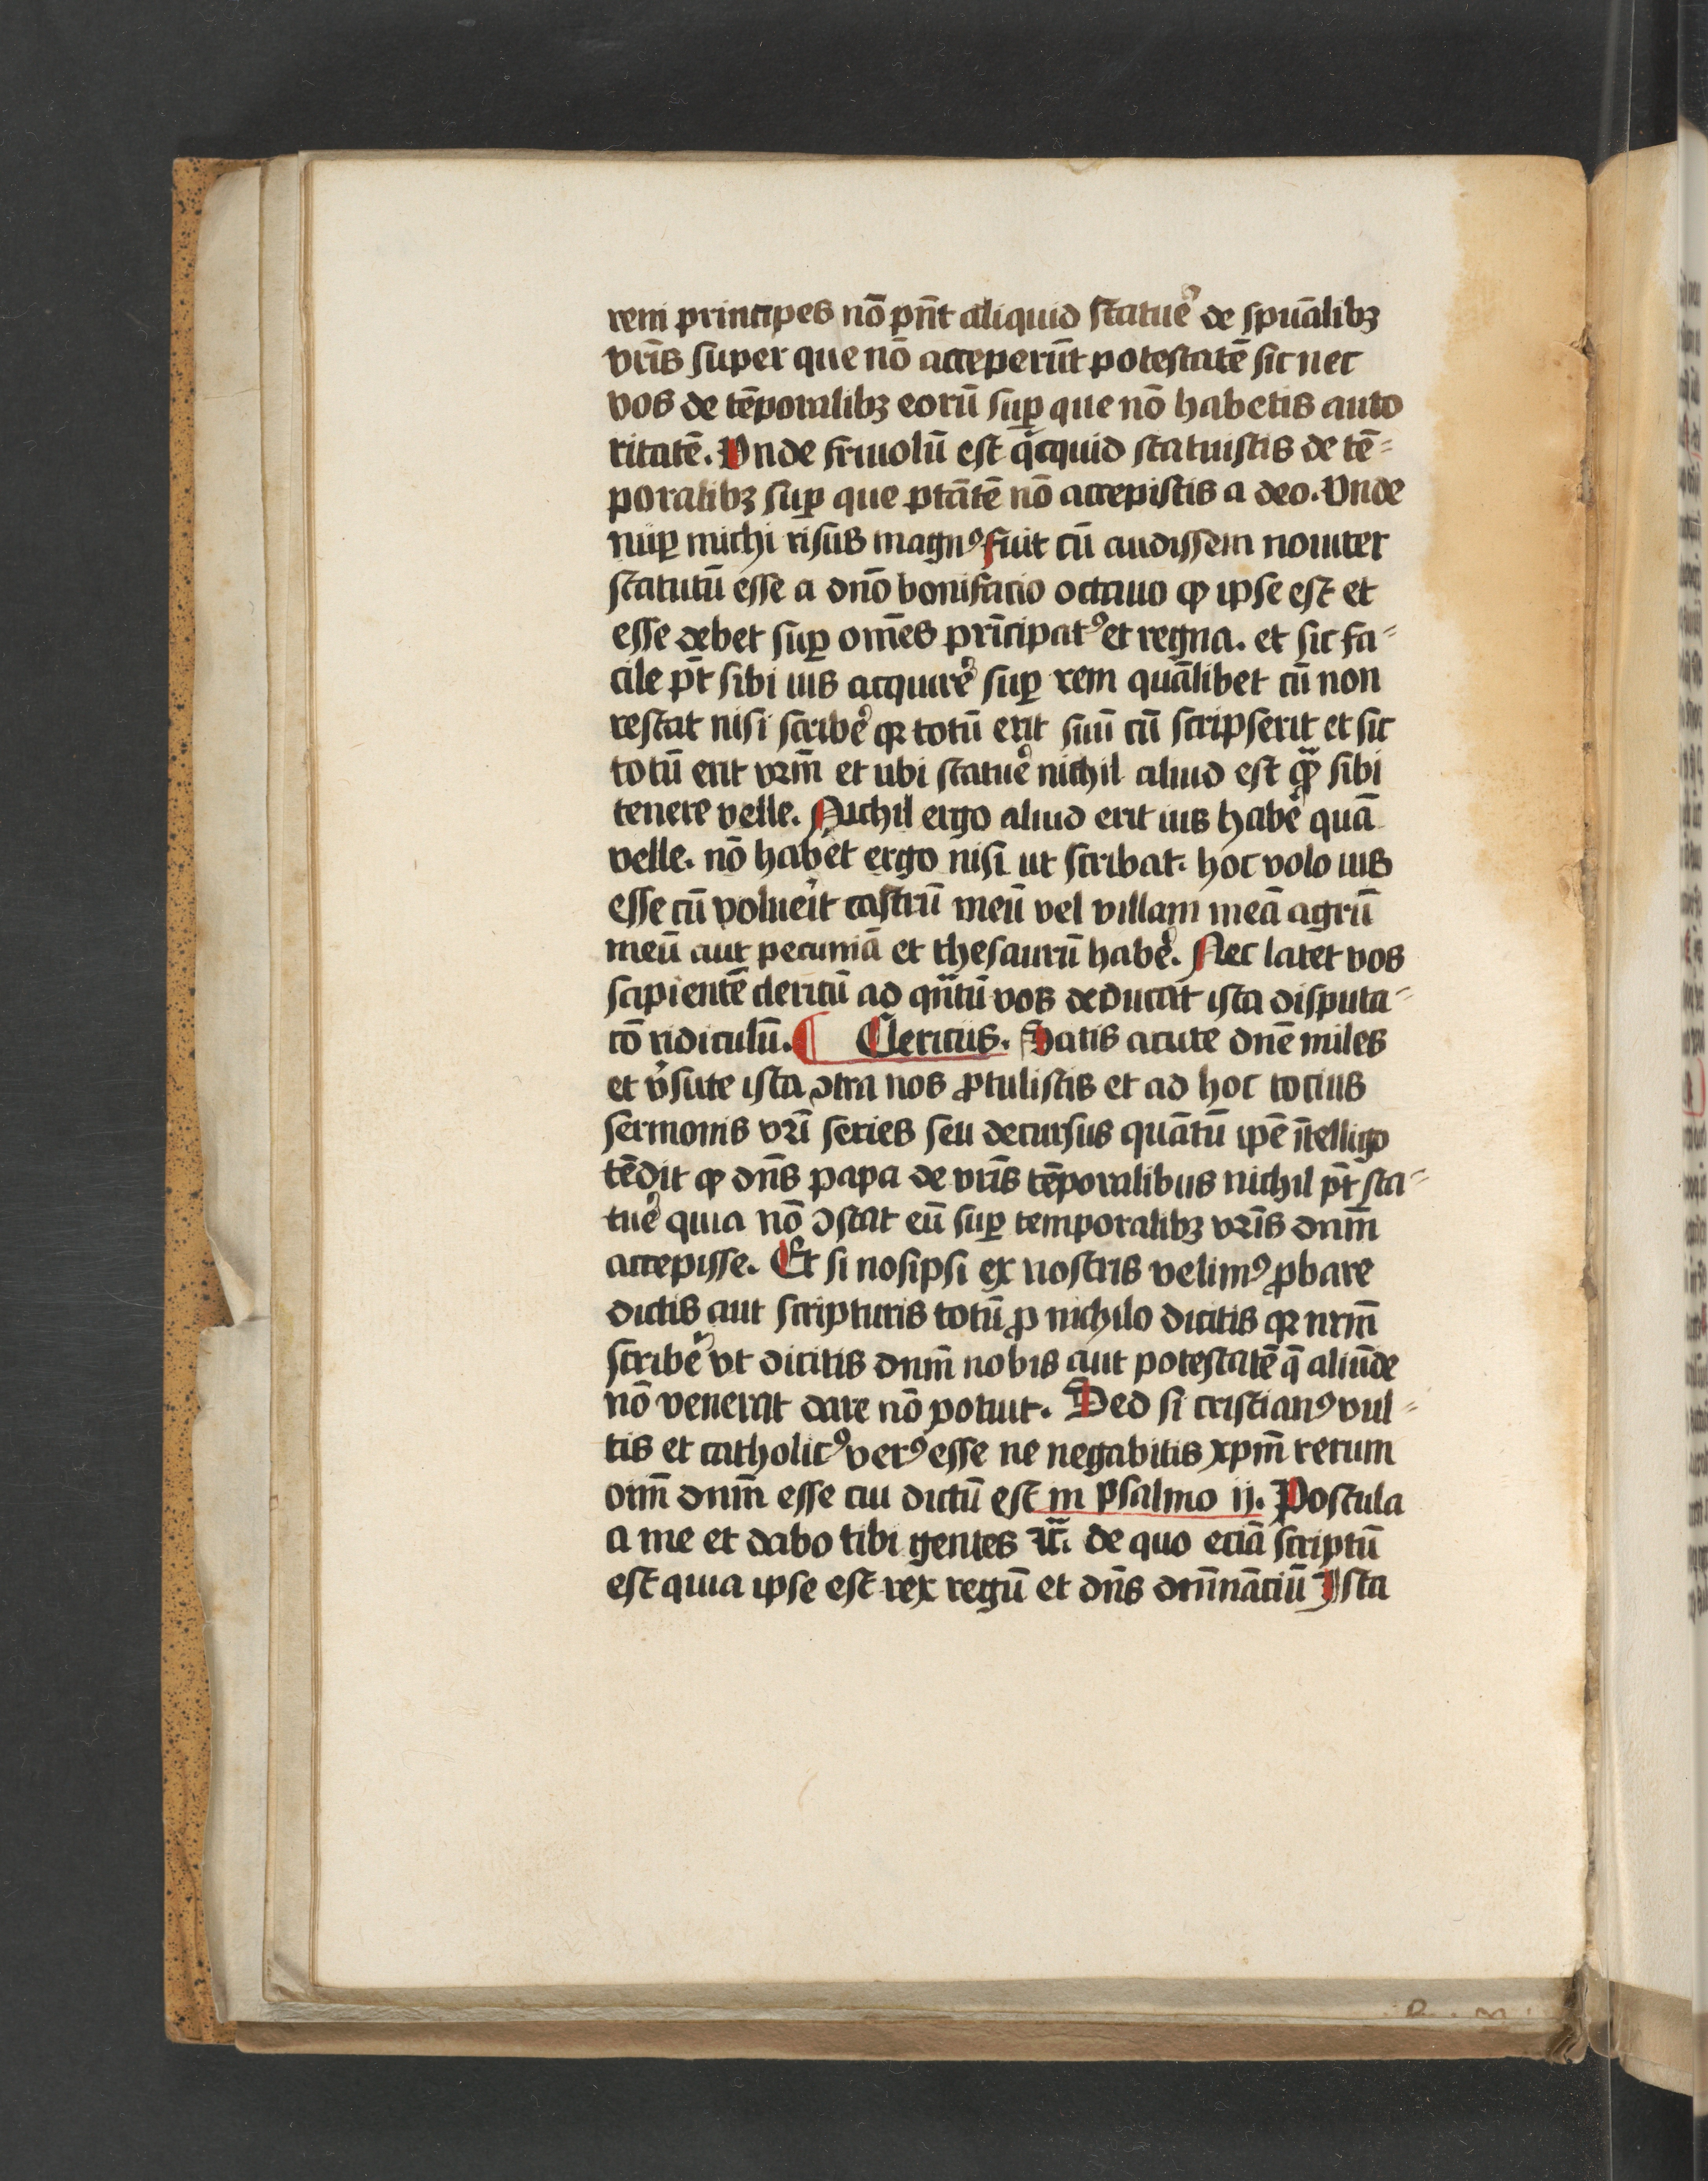 rem principes nō pn̄t aliquid statue᷒ de spūalibꝫ
vr̄is super que nō acceperūt potestatē sic nec
vos de tēporalibꝫ eorū suꝑ que nō habetis aucto
ritatē. Vnde friuolū est qͥcquid statuistis de tē⸗
poralibꝫ suꝑ que ptātē nō accepistis a deo. Vnde
nuꝑ michi risus magnꝰ fuit cū audissem nouiter
statutū esse a dn̄o bonifacio octauo ꝙ ipse est et
esse debet suꝑ om̄es prīcipatꝰ et regna. et sic fa⸗
cile pt̄ sibi ius acquire᷒ suꝑ rem quālibet cū non
restat nisi scribe᷒ qꝛ totū erit suū cū scripserit et sic
totū erit vr̄m et ubi statue᷒ nichil aliud est qᷓꝫ sibi
tenere velle. Nichil ergo aliud erit ius habe᷒ quā
velle. nō habet ergo nisi ut scribat. hoc volo ius
esse cū volue᷒it castrū meū vel villam meā agrū
meū aut pecuniā et thesaurū habe᷒. Nec latet vos
sapientē clericū ad qᷓntū vos deducat ista disputa⸗
cō ridiculū. ¶ Clericus. Satis acute dn̄e miles
et v᷒sute ista ↄtra nos ꝓtulistis et ad hoc tocius
sermonis vr̄i series seu decursus quātū ip̄e ītelligo
tēdit ꝙ dn̄s papa de vr̄is tēporalibus nichil pt̄ sta⸗
tue᷒ quia nō ↄstat eū suꝑ temporalibꝫ vr̄is dn̄m
accepisse. Et si nosipsi ex nostris velimꝰ ꝓbare
dictis aut scripturis totū ꝓ nichilo dicitis qꝛ nr̄m
scribe᷒ vt dicitis dn̄m nobis aut potestatē q̄ aliūde
nō venerat dare nō potuit. Sed si cristianꝰ vul⸗
tis et catholicꝰ verꝰ esse ne negabitis xp̄m rerum
oīm dn̄m esse cui dictū est in psalmo ij. Postula
a me et dabo tibi gentes ⁊c̄. de quo eciā scriptū
est quia ipse est rex regū et dn̄s dn̄nāciū Ista